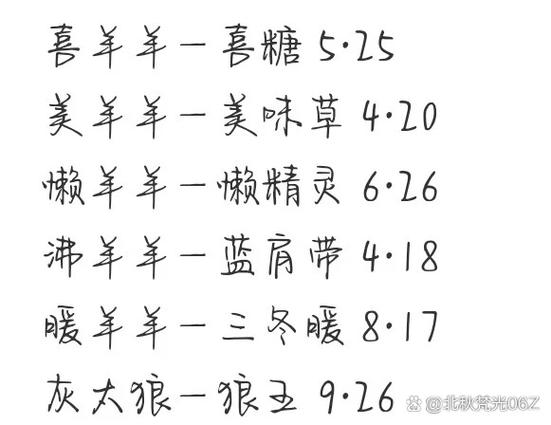 喜羊羊一喜糖 5·25
美羊羊一美味草 4·20
懒羊羊一懒精灵 6·26
沸羊羊一蓝肩带 4·18
暖羊羊一三冬暖 8·17
灰太狼一狼王 9·26
@北秋梵光06Z